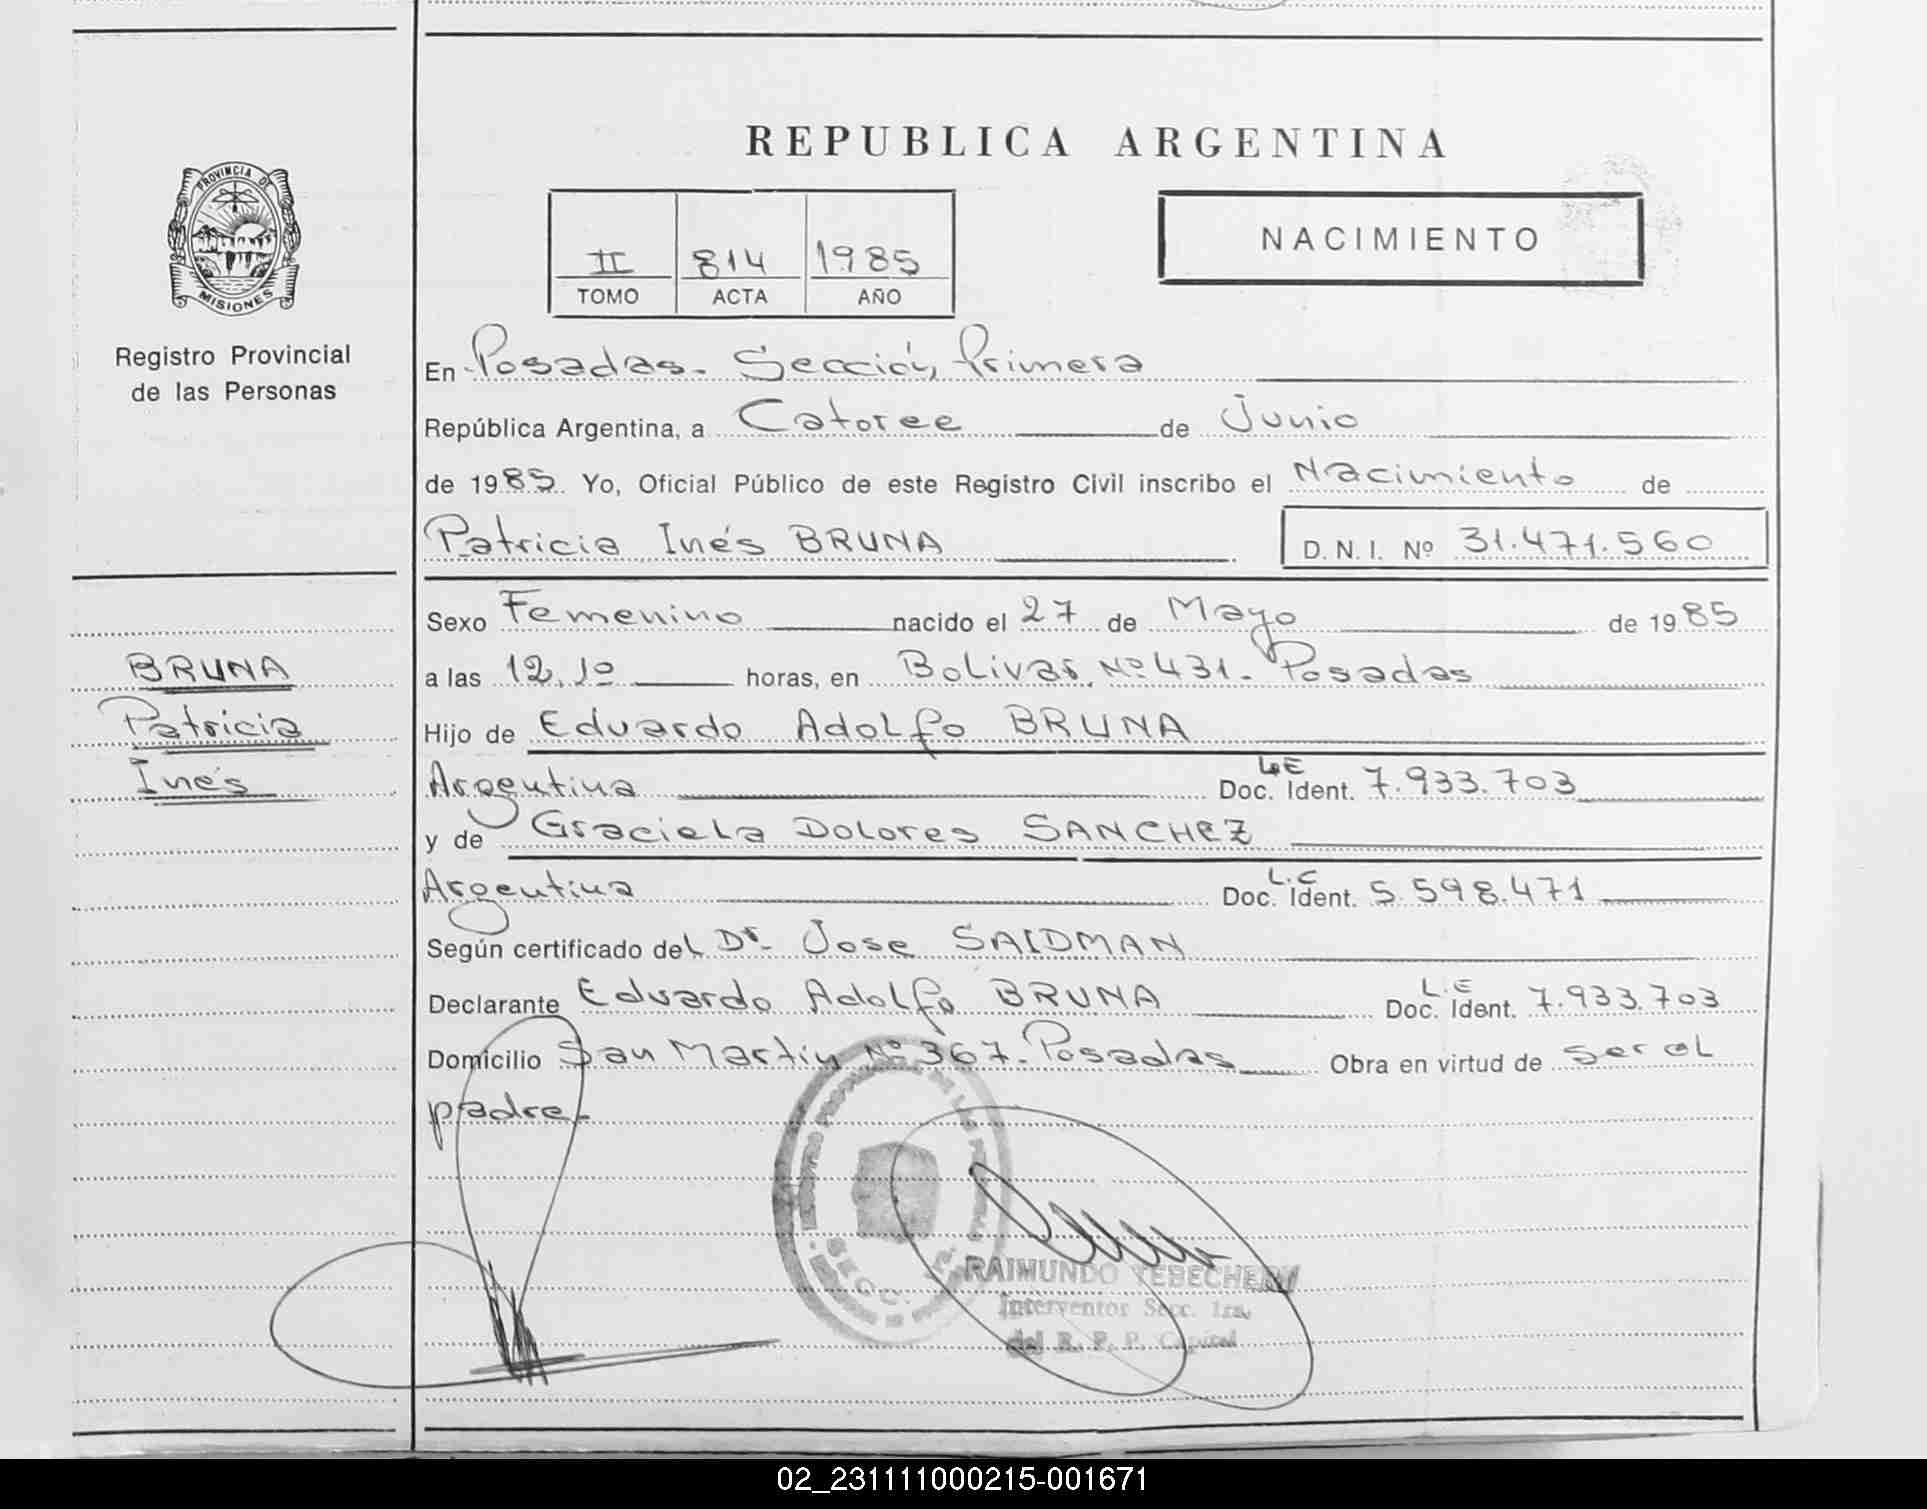 REPUBLICA ARGENTINA
PROVINCIA DE
MISIONES
Registro Provincial
de las Personas
II 814 1985
TOMO ACTA AÑO
NACIMIENTO
En Posadas. Sección Primera
República Argentina, a Catorce de Junio
de 1985. Yo, Oficial Público de este Registro Civil inscribo el Nacimiento de
Patricia Inés BRUNA D.N.I. Nº 31.471.560
Sexo Femenino nacido el 27 de Mayo de 1985
BRUNA
Patricia
Inés
a las 12,10 horas, en Bolivar Nº 431. Posadas
Hijo de Eduardo Adolfo BRUNA
Argentina Doc. Ident. L.E 7.933.703
y de Graciela Dolores SANCHEZ
Argentina Doc. Ident. L.C 5.598.471
Según certificado del Dr. Jose SAIDMAN
Declarante Eduardo Adolfo BRUNA Doc. Ident. L.E 7.933.703
Domicilio San Martin Nº 367. Posadas Obra en virtud de ser el
padre.
SECC. 1ra.
RAIMUNDO TEBECHERY
Interventor Secc. 1ra.
del R. P. P. Capital
02_231111000215-001671